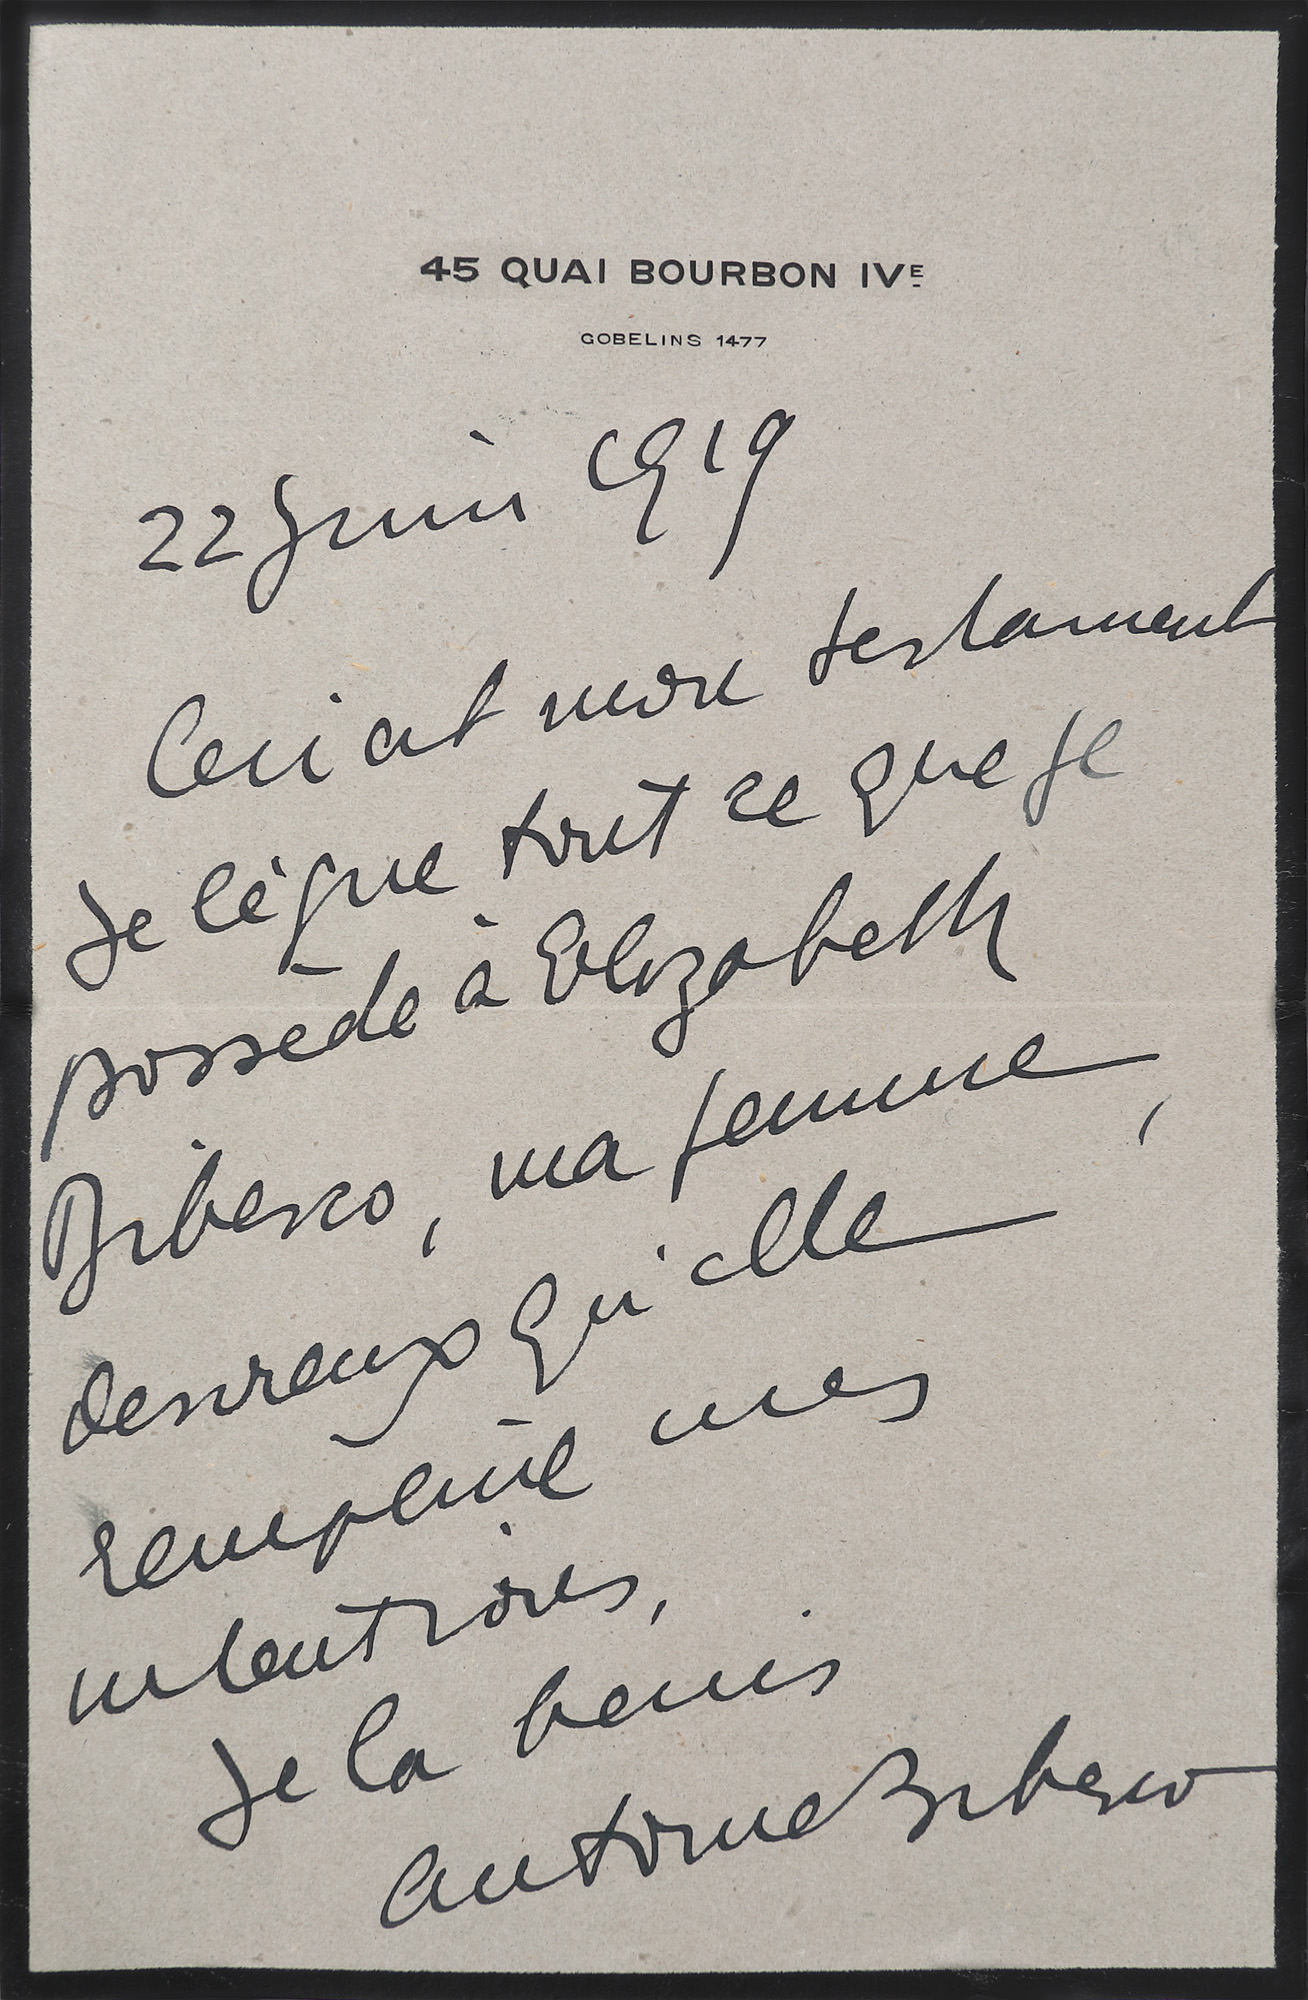 45 QUAI BOURBON IVE
GOBELINS 1477
22 Juin 1919
Ceci est mon testament
Je lègue tout ce que je
possède à Elizabeth
Bibesco, ma femme,
desireux qu'elle
remplisse mes
intentions,
Je la benis
Antoine Bibesco